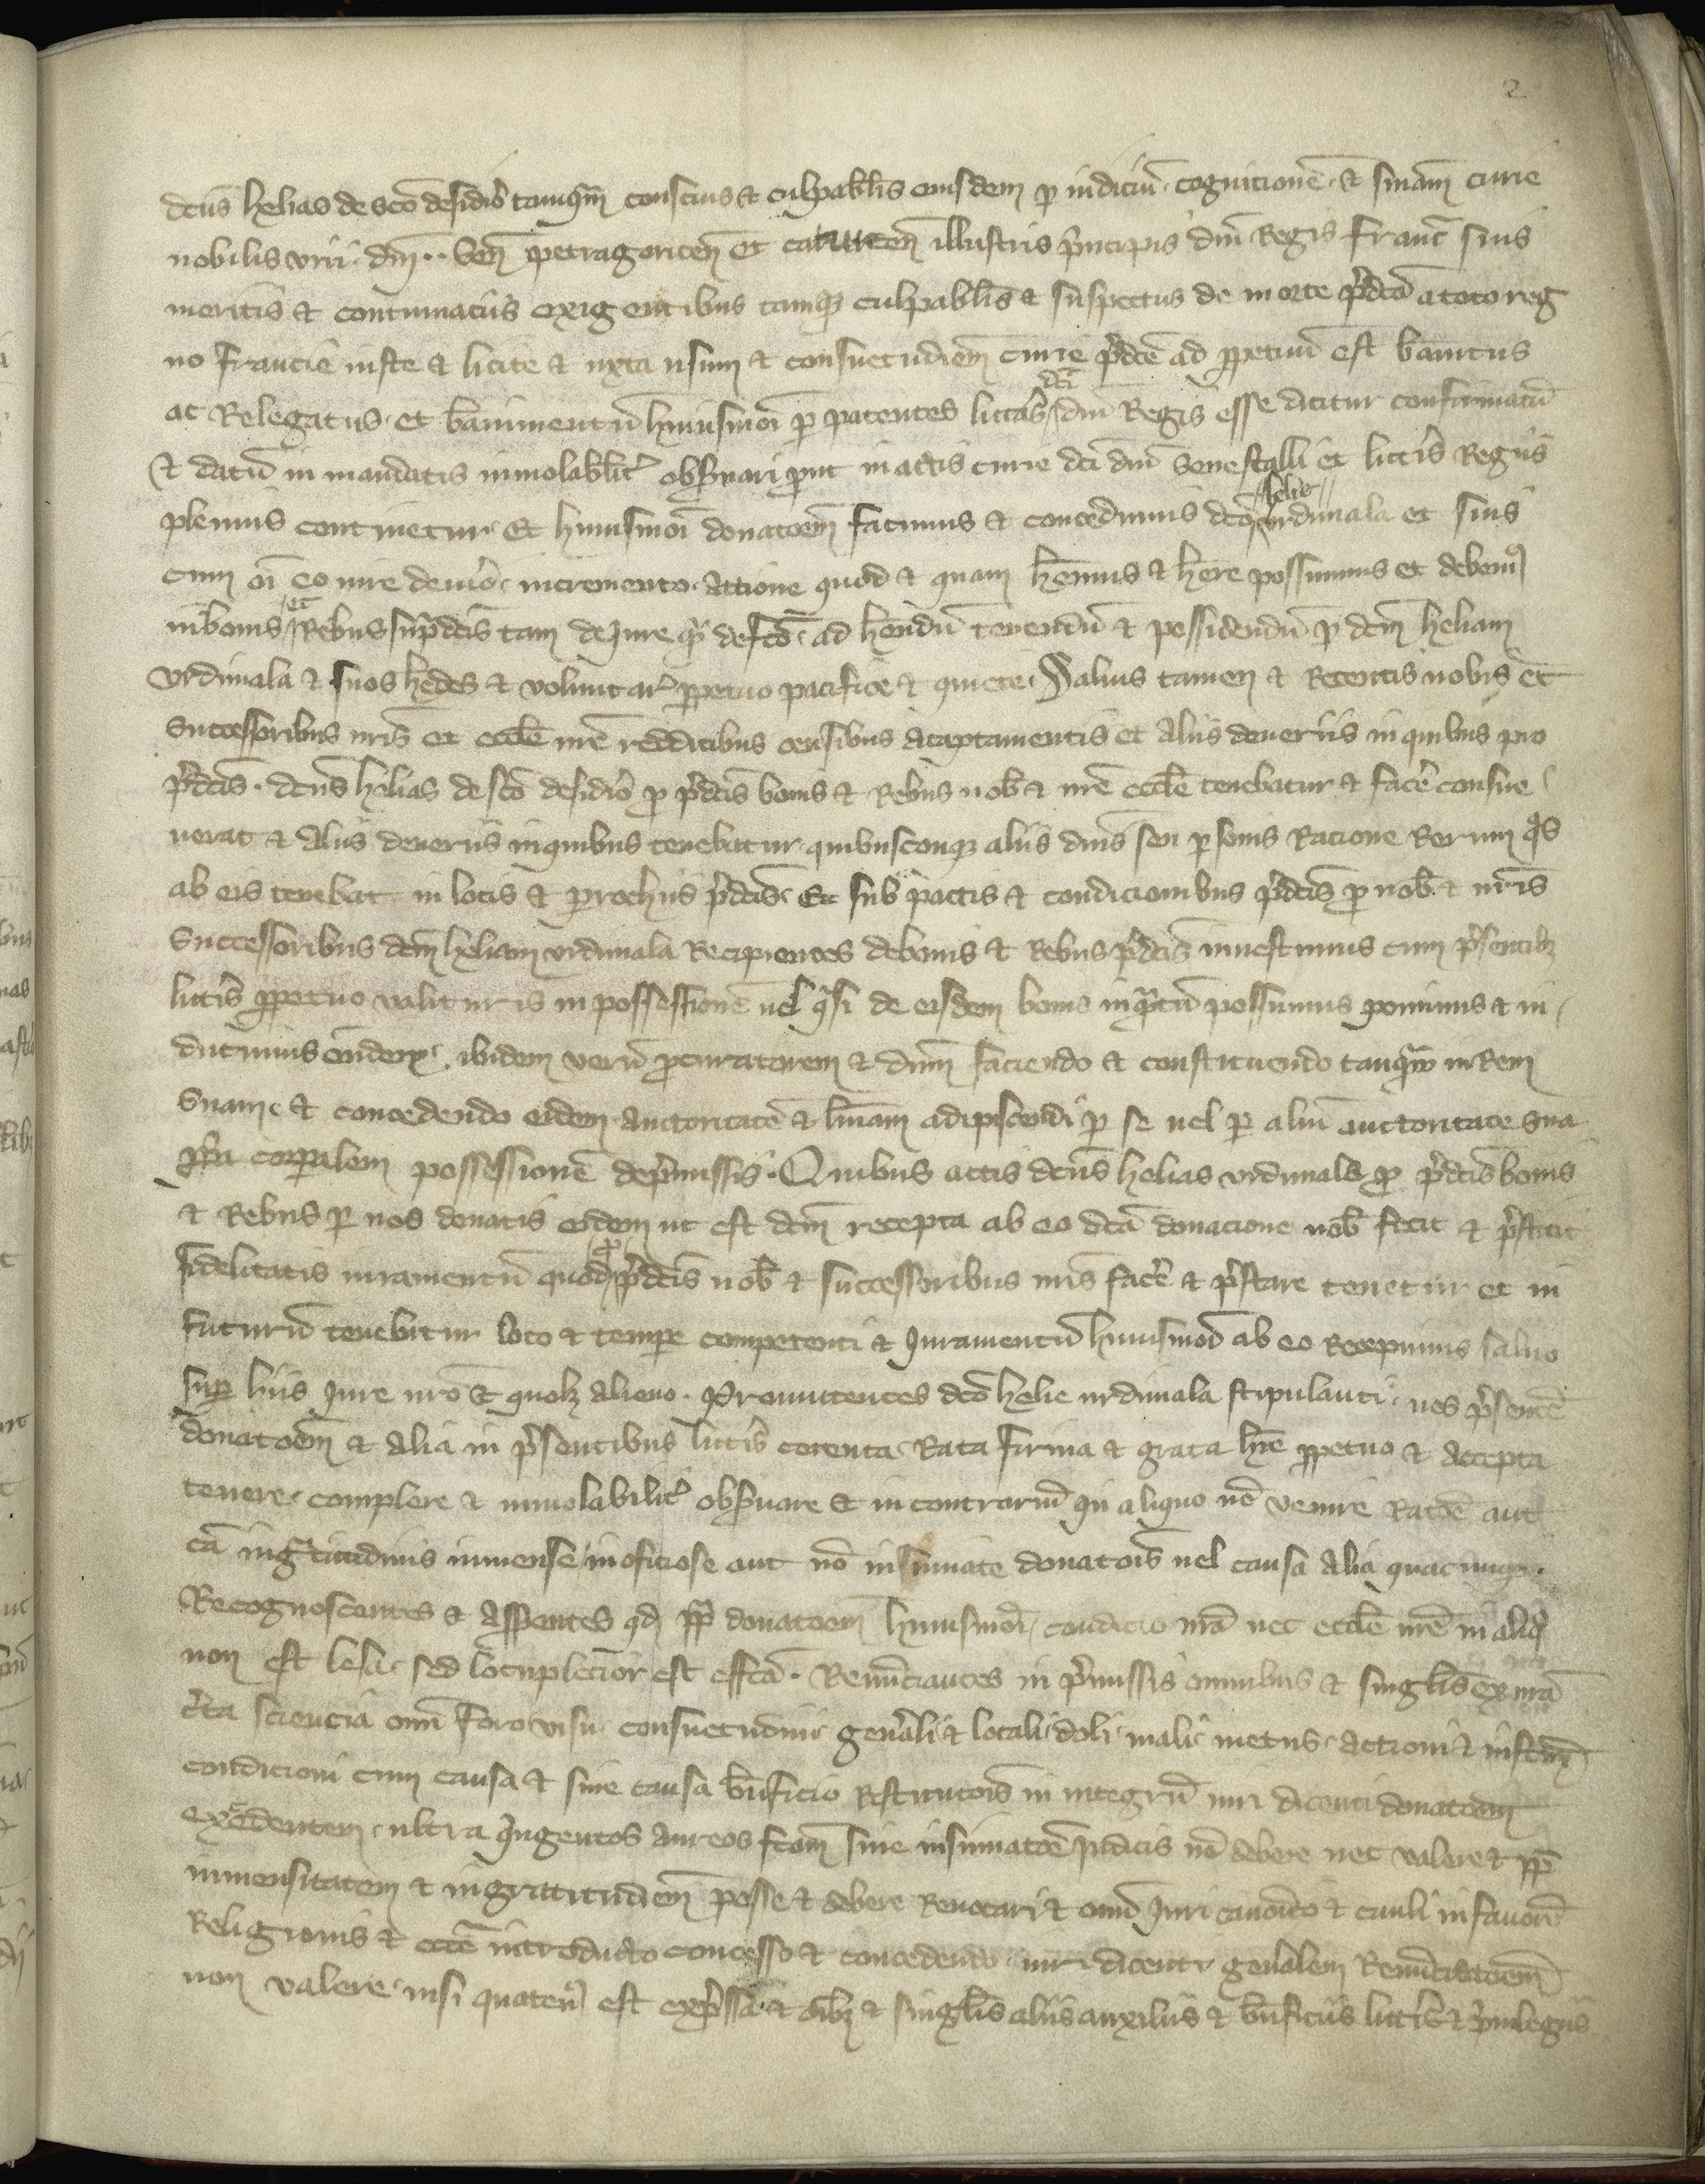 2
dcus helias de sco desidio tamqm conscius et culpablis eiusdem p indiciu cognicione et sniam curie
nobilis viri dni .. Sen petragoricen et caturcen illustris pncipis dni Regis Franc suis
meritis et contumaciis exigentibus tamqz culpablis et suspectus de morte pdca a toto reg
no Francie iuste et licite et iuxta usum et consuetudiem curie pdce ad ppetuu est banitus
ac Relegatus et banimentu huiusmoi p patentes littas dci dni Regis esse dicitur confirmatu
et datu in mandatis inuiolablit obsuari put in actis curie dci dni Senescalli et littis Regiis
plenius continetur Et huiusmoi donacoem facimus et concedimus dco helie vrdimala et suis
cum oi eo iure deuio incremento actione quod et quam hemus et here possumus et debem9
in bonis et Rebus supdcis tam de Jure q de fco ad hendu tenendu et possidendu p dcm heliam
vrdimala et suos hedes et voluntar ppetuo pacifice et quiete Saluis tamen et Retentis nobis et
Successoribus nris et eccle nre redditibus censibus Acaptamentis et Aliis deueriis in quibus pro
pdcis . dcus helias de sco desidio p pdcis bonis et Rebus nob et nre eccle tenebatur et face consue
uerat et Aliis deueriis in quibus tenebatur quibuscunqz aliis dnis seu psonis Racione Rerum qs
ab eis tenebat in locis et prochiis pdcis Et sub pactis et condicionibus pdcis p nob et nris
Successoribus dcm heliam vrdimala Recipientes de bonis et Rebus pdcis inuestimus cum psentibz
littis ppetuo valituris in possessione uel qsi de eisdem bonis inqtu possumus ponimus et in
ducimus eundem ibidem veru pcuratorem et dnm faciendo et constituendo tanqm in Rem
Suam et concedendo eidem auctoritate et lniam adipiscendi p se uel per aliu auctoritate sua
ppa corpalem possessione de pmissis . Quibus actis dcus helias vrdimala p pdcis bonis
et Rebus p nos donatis eidem ut est dcm recepta ab eo dca donacione nob fecit et pstitit
fidelitatis iuramentu quod p pdcis nob et successoribus nris face et pstare tenetur et in
futuru tenebitur loco et tempe competenti et Juramentu huiusmod ab eo Recepimus saluo
sup hiis Jure nro et quolz alieno . Promittentes dco helie urdimala stipulanti nos psente
donacoem et Alia in psentibus littis contenta Rata firma et grata hre ppetuo et accepta
tenere complere et inuiolabilit obsuare et in contrariu in aliquo no venire Racoe aut
ca ingtitudinis inmense inoficiose aut no insinuate donacois uel causa Alia quacunqz .
Recognoscentes et Asserentes qd pp donacoem huiusmoi condicio nra nec eccle nre in aliq
non est lesa sed locuplecior est effca . Renuciantes in pmissis omnibus et singlis ex nra
cta sciencia omi Foro visu consuetudini genali et locali doli mali metus actioni et in fcm
condicioni cum causa et sine causa bnficio Restitucois in integru iuri dicenti donacoem
excedentem ultra Quingentos Aureos fcam sine insinuacoe Judicis no debere nec valere et pp
inmensitatem et ingratitudiem posse et debere Reuocari et omi Juri canonico et ciuili in fauore
Religionis et eccie introducto concesso et concedendo iuri dicenti genalem Renuciacoem
non valere nisi quaten9 est expssa et oibz et singlis aliis auxiliis et bnficiis littis et priuilegiis